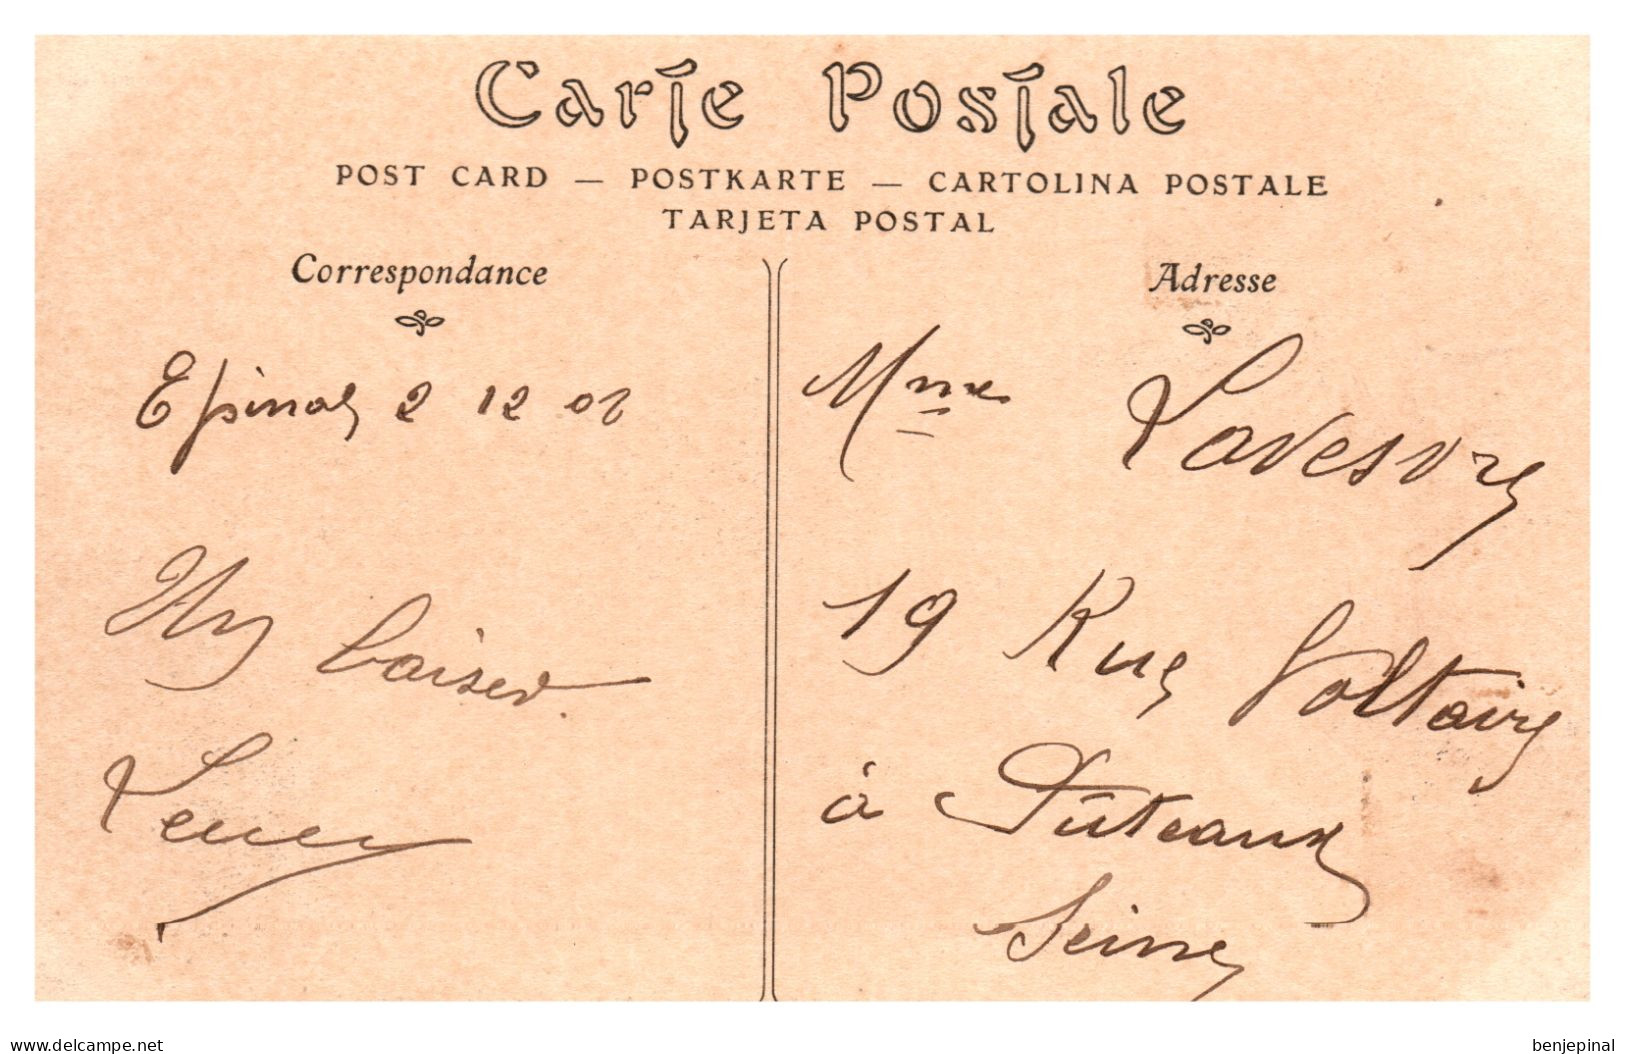 Carte Postale
POST CARD — POSTKARTE — CARTOLINA POSTALE
TARJETA POSTAL
Correspondance
Epinal 2 12 02
Un baiser
Adresse
Mme Lavesvre
19 Rue Voltaire
à Puteaux
Seine
www.delcampe.net
benjepinal